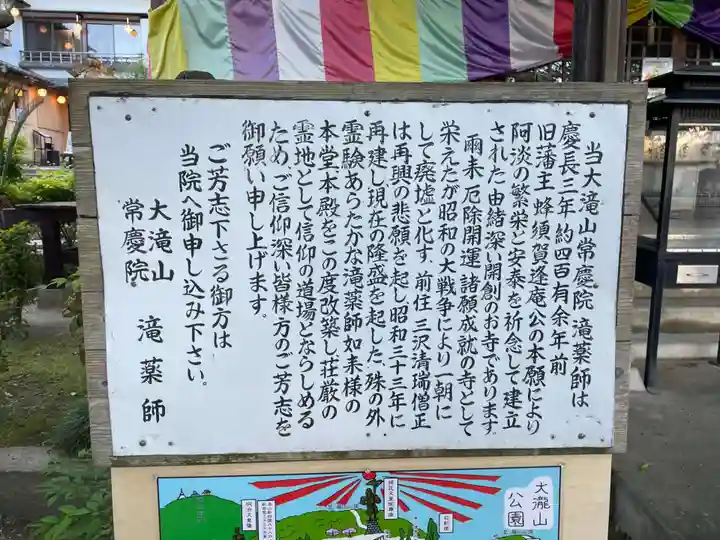 当大滝山常慶院 滝薬師は
慶長三年 約四百有余年前
旧藩主 蜂須賀逢庵公の本願により
阿淡の繁栄と安泰を祈念して建立
された由緒深い開創のお寺であります
雨来 厄除開運 諸願成就の寺として
栄えたが昭和の大戦争により一朝に
して廃墟と化す 前住 三沢清瑞僧正
は再興の悲願を起し昭和三十三年に
再建し現在の隆盛を起した 殊の外
霊験あらたかな滝薬師如来様の
本堂 本殿をこの度改築し荘厳の
霊地として信仰の道場とならしめる
ため、ご信仰深い皆様方のご芳志を
御願い申し上げます。
ご芳志下さる御方は
当院へ御申し込み下さい。
大滝山
常慶院 滝薬師
大瀧山
公園